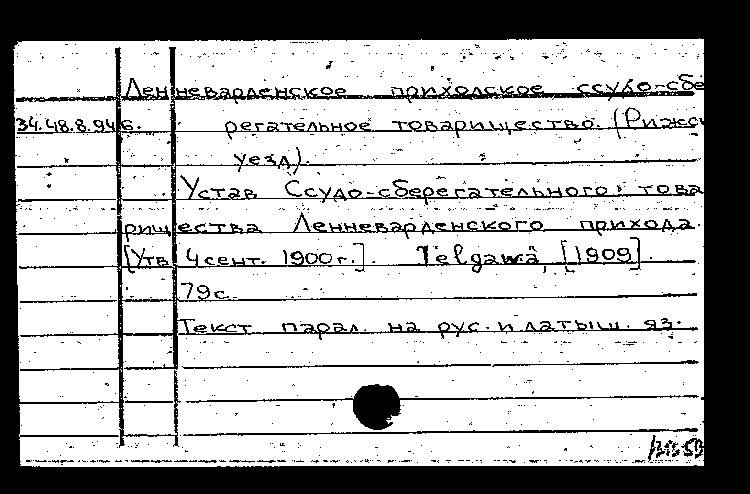 Ленневарденское приходское ссудо-сбе
34.48.8.946. регательное товарищество. (Рижск
уезд).
Устав Ссудо-сберегательного това
рищества Ленневарденского прихода.
[Утв 4 сент. 1900 г.]. Ielgawâ, [1909].
79 с.
Текст парал. на рус. и латыш. яз.